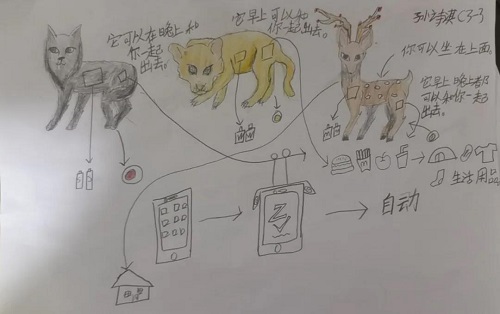 它可以在晚上和
你一起
出去。
它早上可以和
你一起出去。
孙诗淇(3-3)
你可以坐在上面
它早上晚上都
可以和你一起
出去。
生活用品
自动